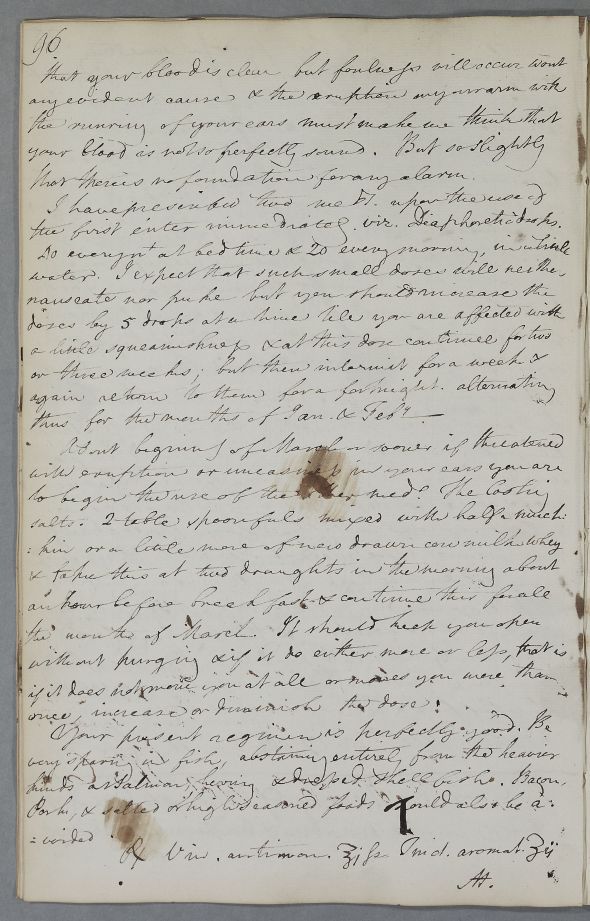 96
that your blood is clear but foulness will occur wont
any evident cause & the eruption on your arm with
the running of your ears must make me think that
your blood is not so perfectly sound. But so slightly
that there is no foundation for any alarm.
I have prescribed two meds. upon the use of
the first enter immediately. viz. Diaphoretic drops.
20 every nt at bed time & 20 every morning, in a little
water. I expect that such small doses will neither
nauseate nor puke but you should increase the
doses by 5 drops at a time till you are affected with
a little squeamishness & at this dose continue for two
or three weeks; but then intermit for a week &
again return to them for a fortnight. alternating
thus for the months of Jan. & Feby.
About beginning of March or sooner if threatened
with eruption or uneasiness in your ears you are
to begin the use of the other med. The Cooling
salts. 2 table spoonfuls mixed with half a mutch:
:kin or a little more of new drawn cow milk whey
& take this at two draughts in the morning about
an hour before breakfast & continue this for all
the month of March. It should keep you open
without purging & if it do either more or less, that is
if it does not move you at all or moves you more than
once, increase or diminish the dose.
Your present regimen is perfectly good. Be
very sparing in fish, abstaining entirely from the heavier
kinds as Salmon, & dressed shell fish. Bacon,
Pork, & salted or high seasoned foods should also be a:
:voided
℞ Vin. antimon. ʒiſs Tinct. aromat. ʒij
M.